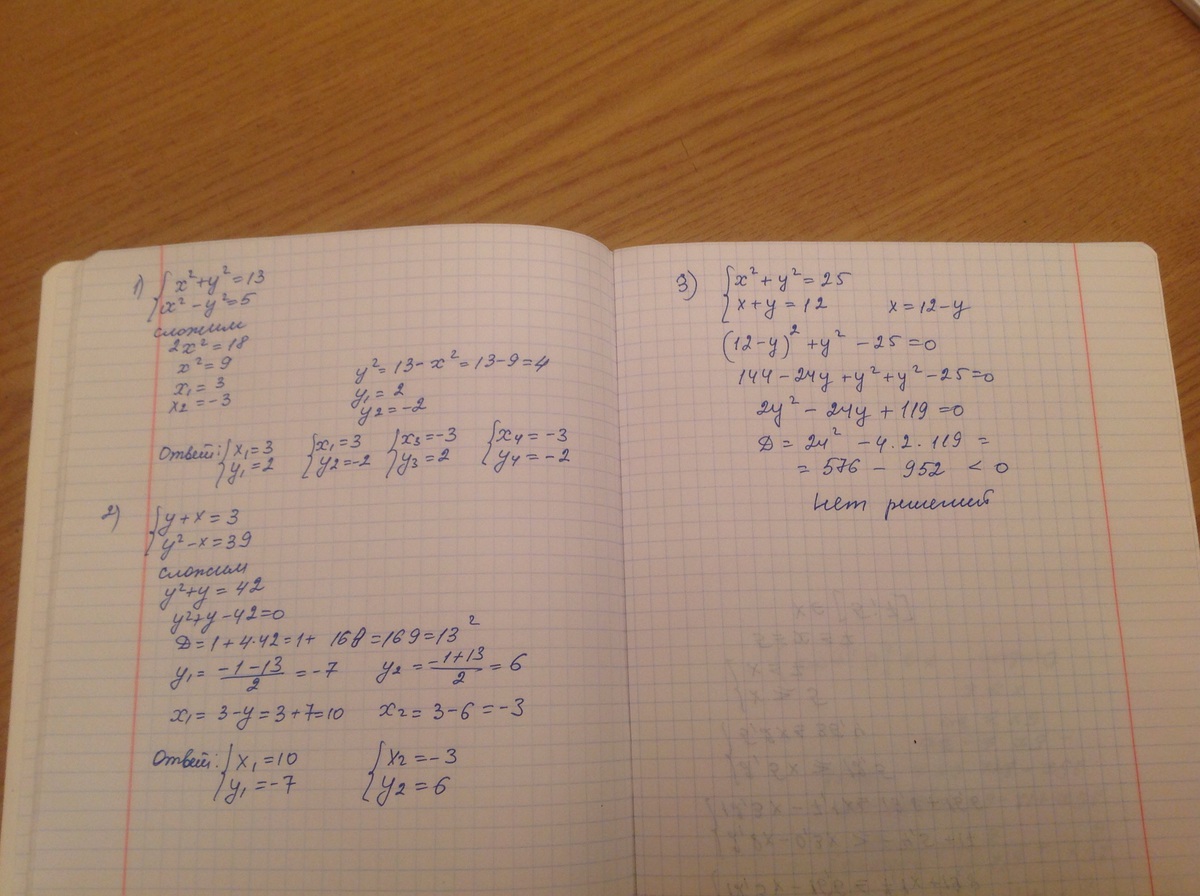 1) { x² + y² = 13
x² - y² = 5
сложим
2x² = 18
x² = 9
x₁ = 3
x₂ = -3
y² = 13 - x² = 13 - 9 = 4
y₁ = 2
y₂ = -2
Ответ: { x₁ = 3 { x₁ = 3 { x₃ = -3 { x₄ = -3
y₁ = 2 y₂ = -2 y₃ = 2 y₄ = -2
2) { y + x = 3
y² - x = 39
сложим
y² + y = 42
y² + y - 42 = 0
D = 1 + 4·42 = 1 + 168 = 169 = 13²
y₁ = (-1-13)/2 = -7 y₂ = (-1+13)/2 = 6
x₁ = 3 - y = 3 + 7 = 10 x₂ = 3 - 6 = -3
Ответ: { x₁ = 10 { x₂ = -3
y₁ = -7 y₂ = 6
3) { x² + y² = 25
x + y = 12 x = 12 - y
(12 - y)² + y² - 25 = 0
144 - 24y + y² + y² - 25 = 0
2y² - 24y + 119 = 0
D = 24² - 4·2·119 =
= 576 - 952 < 0
Нет решений